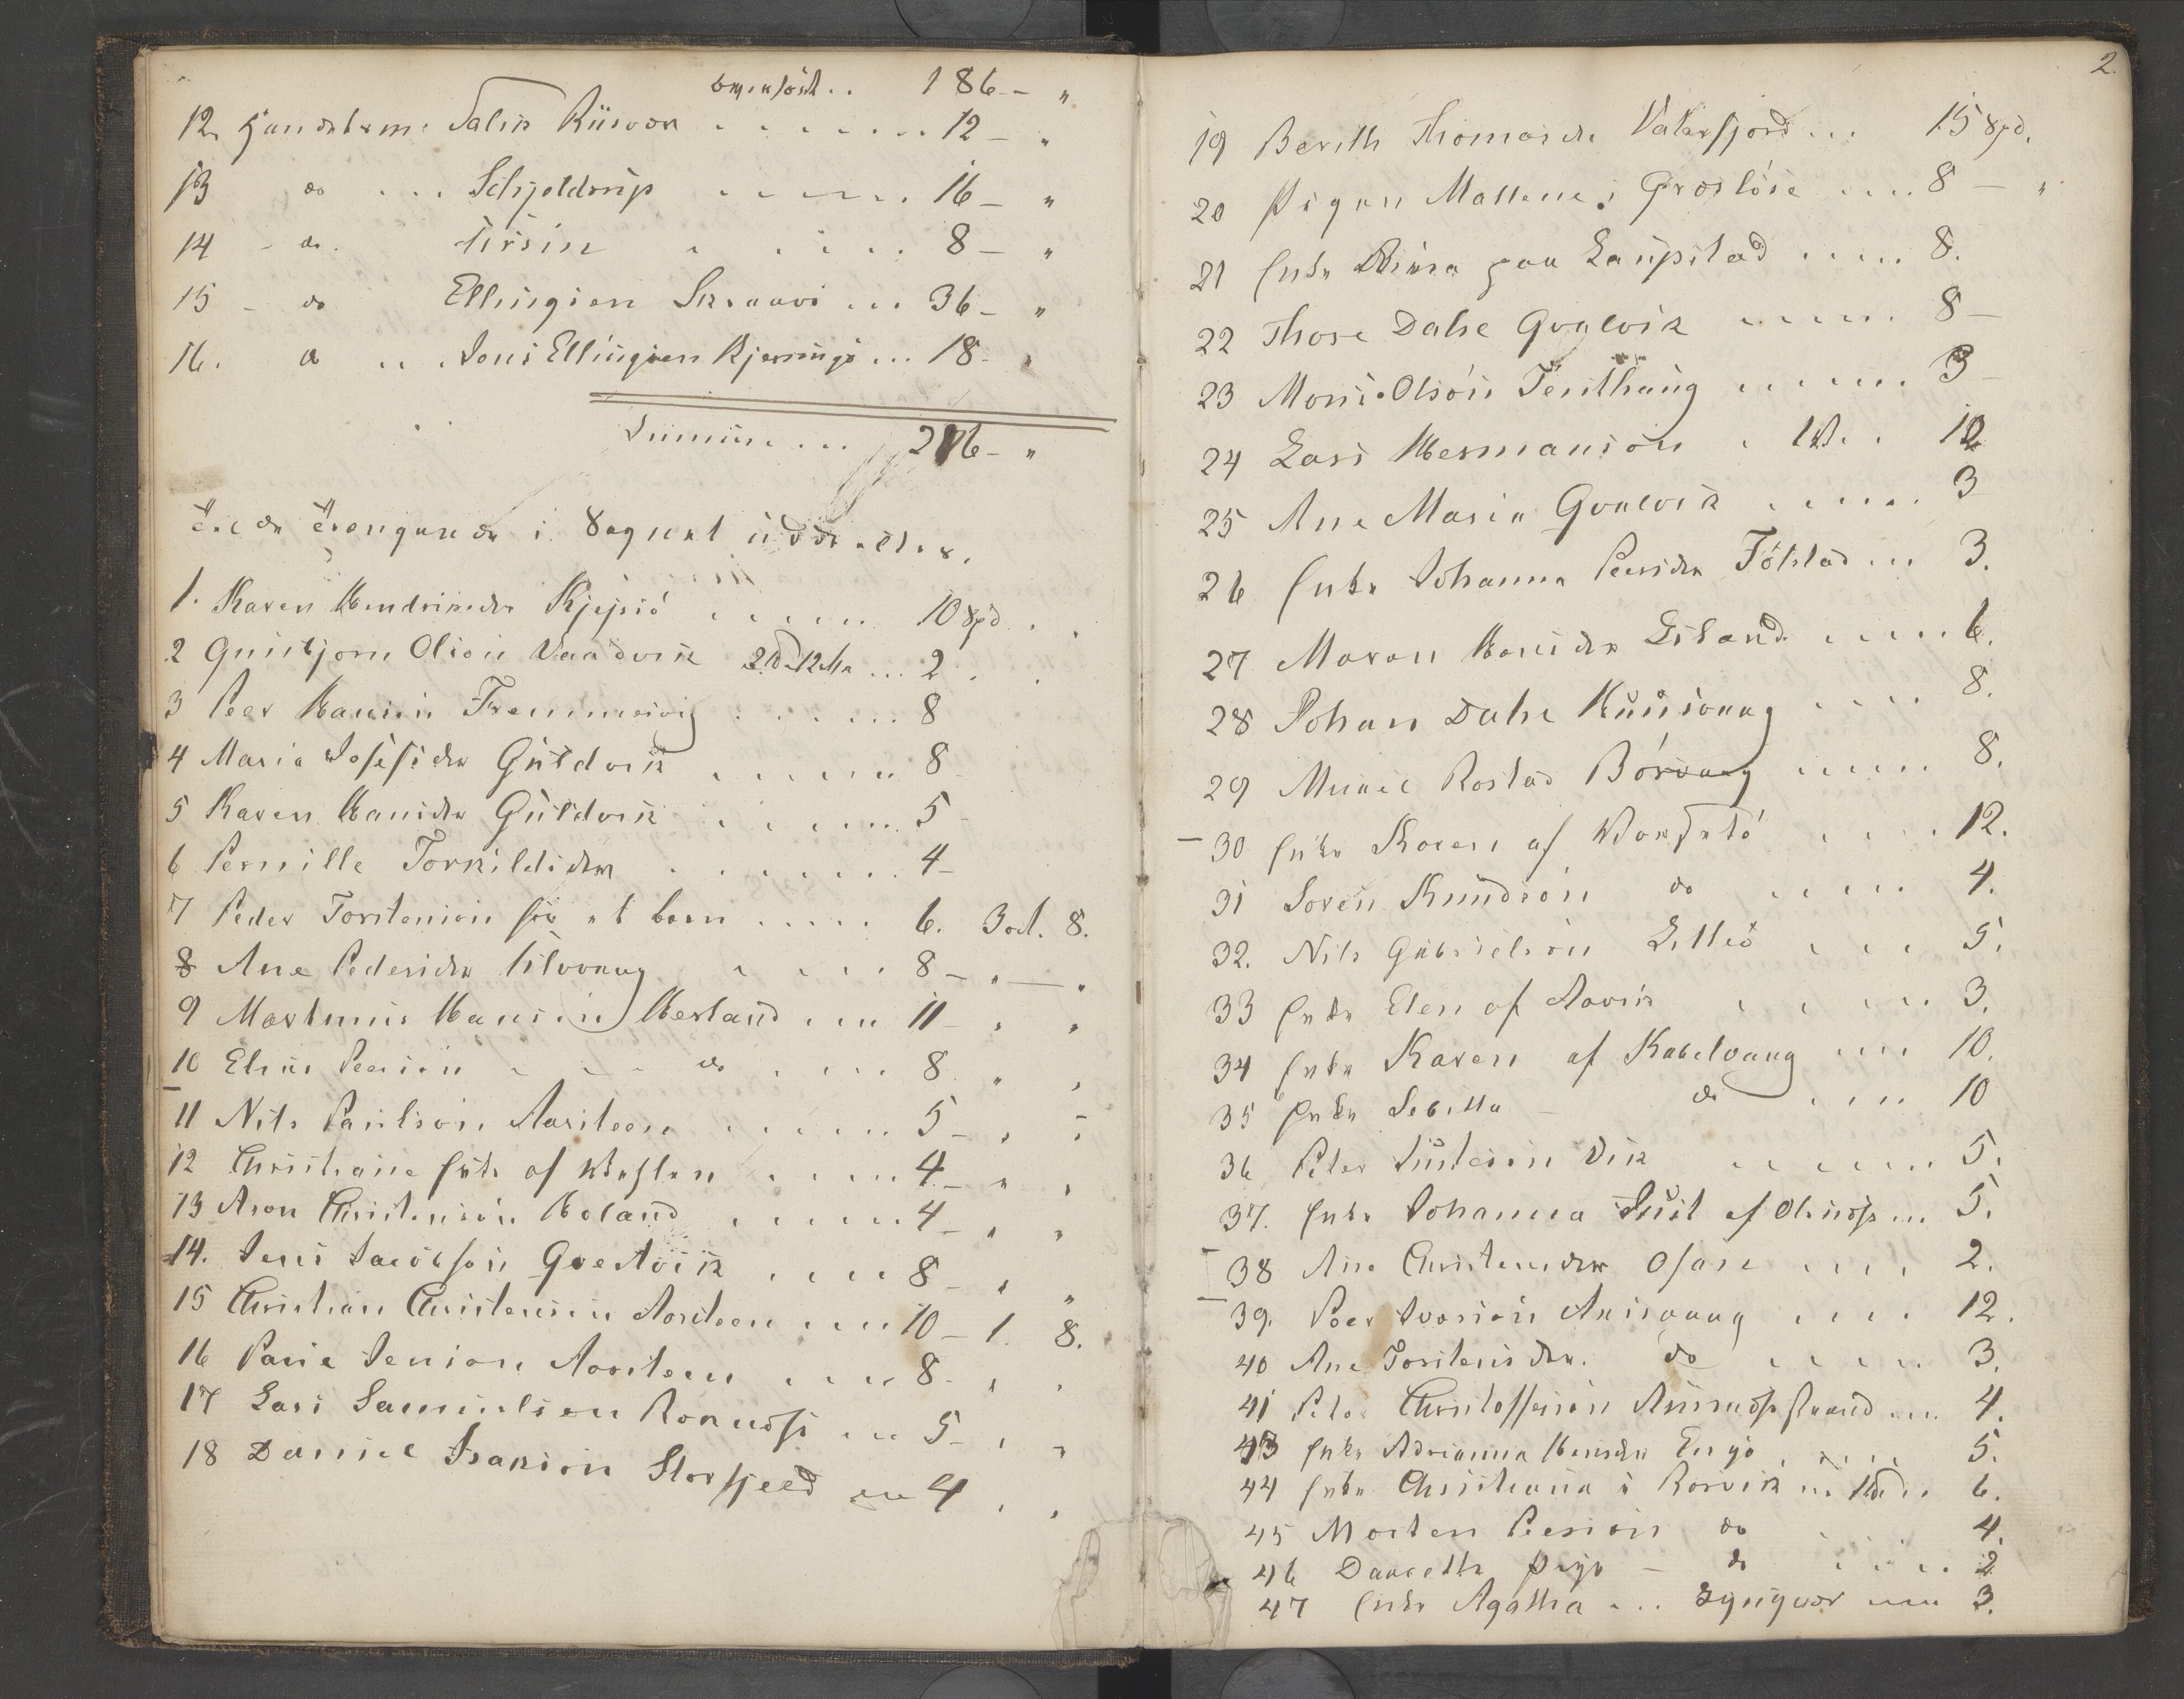 186 - "
12 Handelsm: Falch Riisvær ....... 12 - "
13 do ... Schjeldrup ...... 16 - "
14 - do. Ursin .... 8 - "
15 - do Ellingsen Skraavi ... 36 - "
16. do ... Jens Ellingsen Kjerringø ... 18 - "
Summa ... 276 - "
trængende i Sognet
1. Karen Hendriksdr Kjeøsø ...... 10 Spd
2 Gunbjorn Olsøn Vaadvik 2 ... 2
3 Peer Hansøn Tremmesvig ...... 8
4 Maria Josefsdr Guldvik ...... 8
5 Karen Hansdr Guldvik ...... 5 -
6 Pernille Torkildsdr ....... 4 -
7 Peder Torstensøn for et barn ..... 6. 3 ort. 8.
8 Ane Pedersdr Ulvvaag .... 8 - " - "
9 Marthinus Hansøn Hestand .... 11 - " "
10 Elias Peersøn - - - do .... 8 " "
11 Nils Paulsøn Aarsteen ...... 5 - " "
12 Christiane Enke af .... 4 - " "
13 Aron Christensøn Holand ...... 4 - " "
14. Jens Jacobsøn Qvalvik .... 8 - " "
15 Christian Christensøn Aarsteen .... 10 - 1. 8.
16 Parie Jensøn Aarsteen .... 8 - " "
17 Lars Samuelsøn ... 5 - " "
18 Daniel Isaksøn Storfjeld ... 4 " "
2.
19 Berith Thomasdr Vaterfjord ... 15 Spd.
20 Pigen Mallene i Græslöse .... 8 - "
21 Enke paa Laupstad ..... 8.
22 Thore Dahl Qvalvik ..... 8 -
23 Mons Olsøn Tenthaug ...... 3 -
24 Lars Hermansøn .. 12
25 Ane Maria Qvalvik ..... 3
26 Enke Johanna Peersdr Følstad ... 3.
27 Maren Hansdr Liland ..... 6.
28 Johan Dahl .... 8.
29 Mikael Rostad Börvaag ..... 8.
- 30 Enke Karen af .... 12.
31 Soren Knudsøn do ..... 4.
32. Nils Gabrielsøn Lilleø ... 5.
33 Enke Elen af Aavik .... 3.
34 Enke Karen af Kabelvaag .... 10.
35 Enke Sebilla - do .... 10
36 Peter Justesøn Vik ...... 5.
37. Enke Johanna Juul af ... 5.
38 Ane Christensdr Osan .... 2.
39. Peer Ivarsøn .... 12.
40 Ane Torstensdr. do ..... 3.
41 Peter Christoffersøn ... 4.
43 Enke Adrianna Hansdr ..... 5.
44 Enke Christiana i Rorvik ... 6.
45 Morten Peersøn do .... 4.
46 Danselth Pige - do .... 2
47 Enke Agatha ... Lyngvær .... 3.